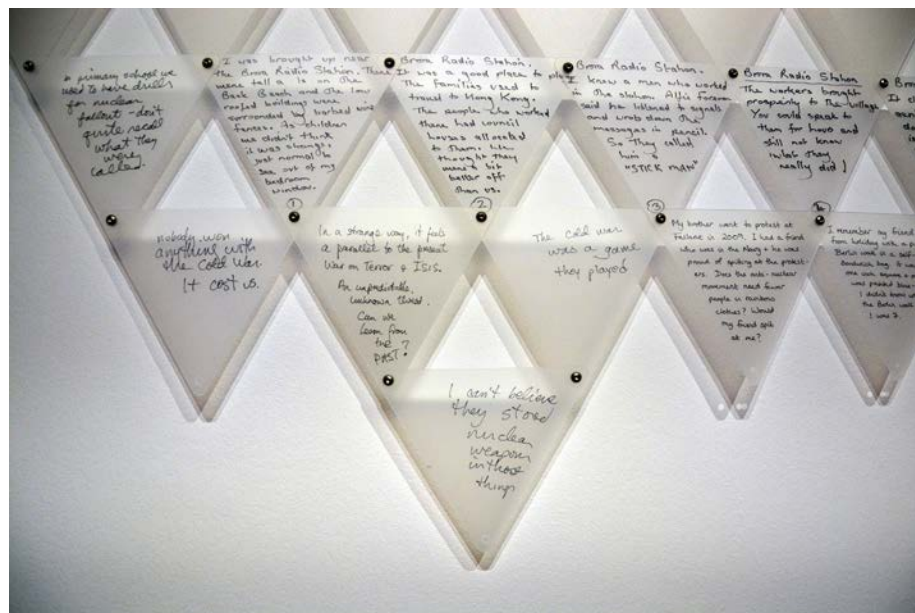 In primary school we
used to have drills
for nuclear
fallout - don't
quite recall
what they
were
called.
I was brought up near
the Brora Radio Station. There
were tall a is on the
Back Beach and the low
roofed buildings were
surronded by barbed wire
fences. As children
we didn't think
it was strange,
just normal to
see out of my
bedroom
window.
①
Brora Radio Station.
It was a good place to play
The families used to
travel to Hong Kong.
The people who worked
there had council
houses allocated
to them. We
thought they
were a bit
better off
than us.
②
Brora Radio Station.
I knew a man who worked
in the station. Alfie
said he listened to signals
and wrote down the
messages in pencil.
So they called
him a
"STICK MAN"
③
Brora Radio Station
The workers brought
prosperity to the village
You could speak to
them for hours and
still not know
what they
really did!
Brora
nobody won
anything with
the Cold War.
It cost us.
In a strange way, it feels
a parallel to the present
War on Terror & ISIS.
An unpredictable,
unknown threat.
Can we
learn from
the
PAST?
The cold war
was a game
they played
My brother went to protest at
Faslane in 2009. I had a friend
who was in the Navy & he was
proud of spitting at the protest-
ers. Does the anti-nuclear
movement need fewer
people in rainbow
clothes? Would
my friend spit
at me?
I remember my friend
from holiday with a p
Berlin wall in a self-
Sandwich bag. It wa
one inch square &
was painted blue
I didn't know
the Berlin wall
I was 8.
I can't believe
they stored
nuclear
weapons
in those
things